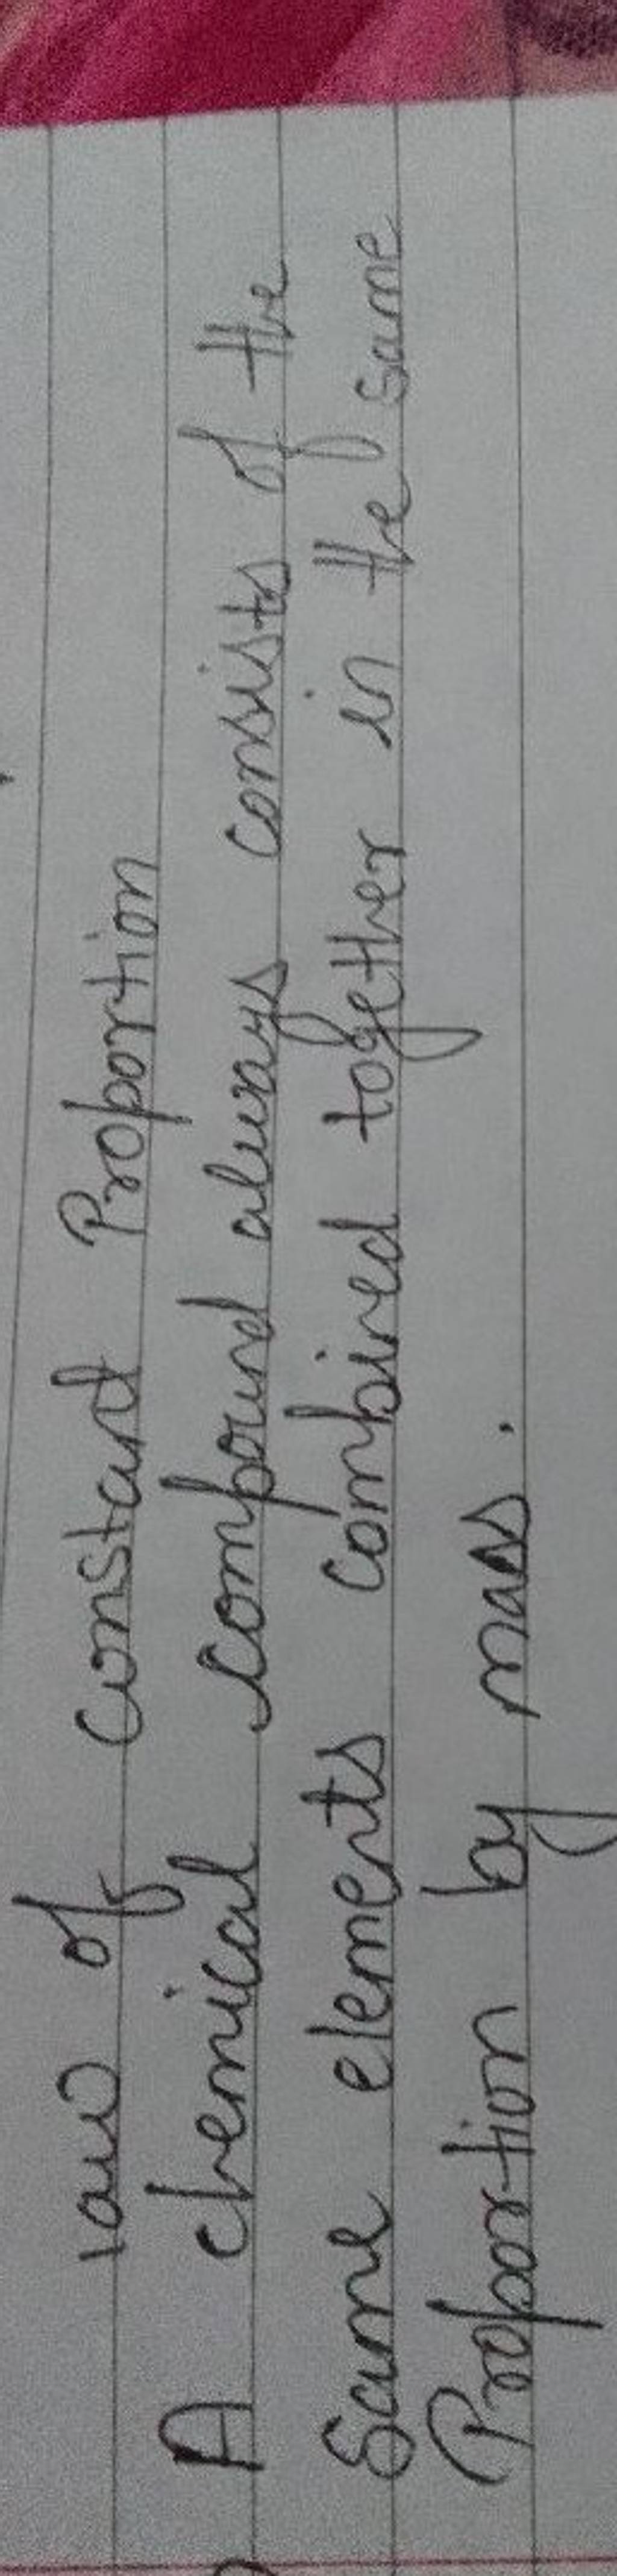 law of constant Proportion
A chemical compound always consists of the
Same elements combined together in the same
Proportion by mass.